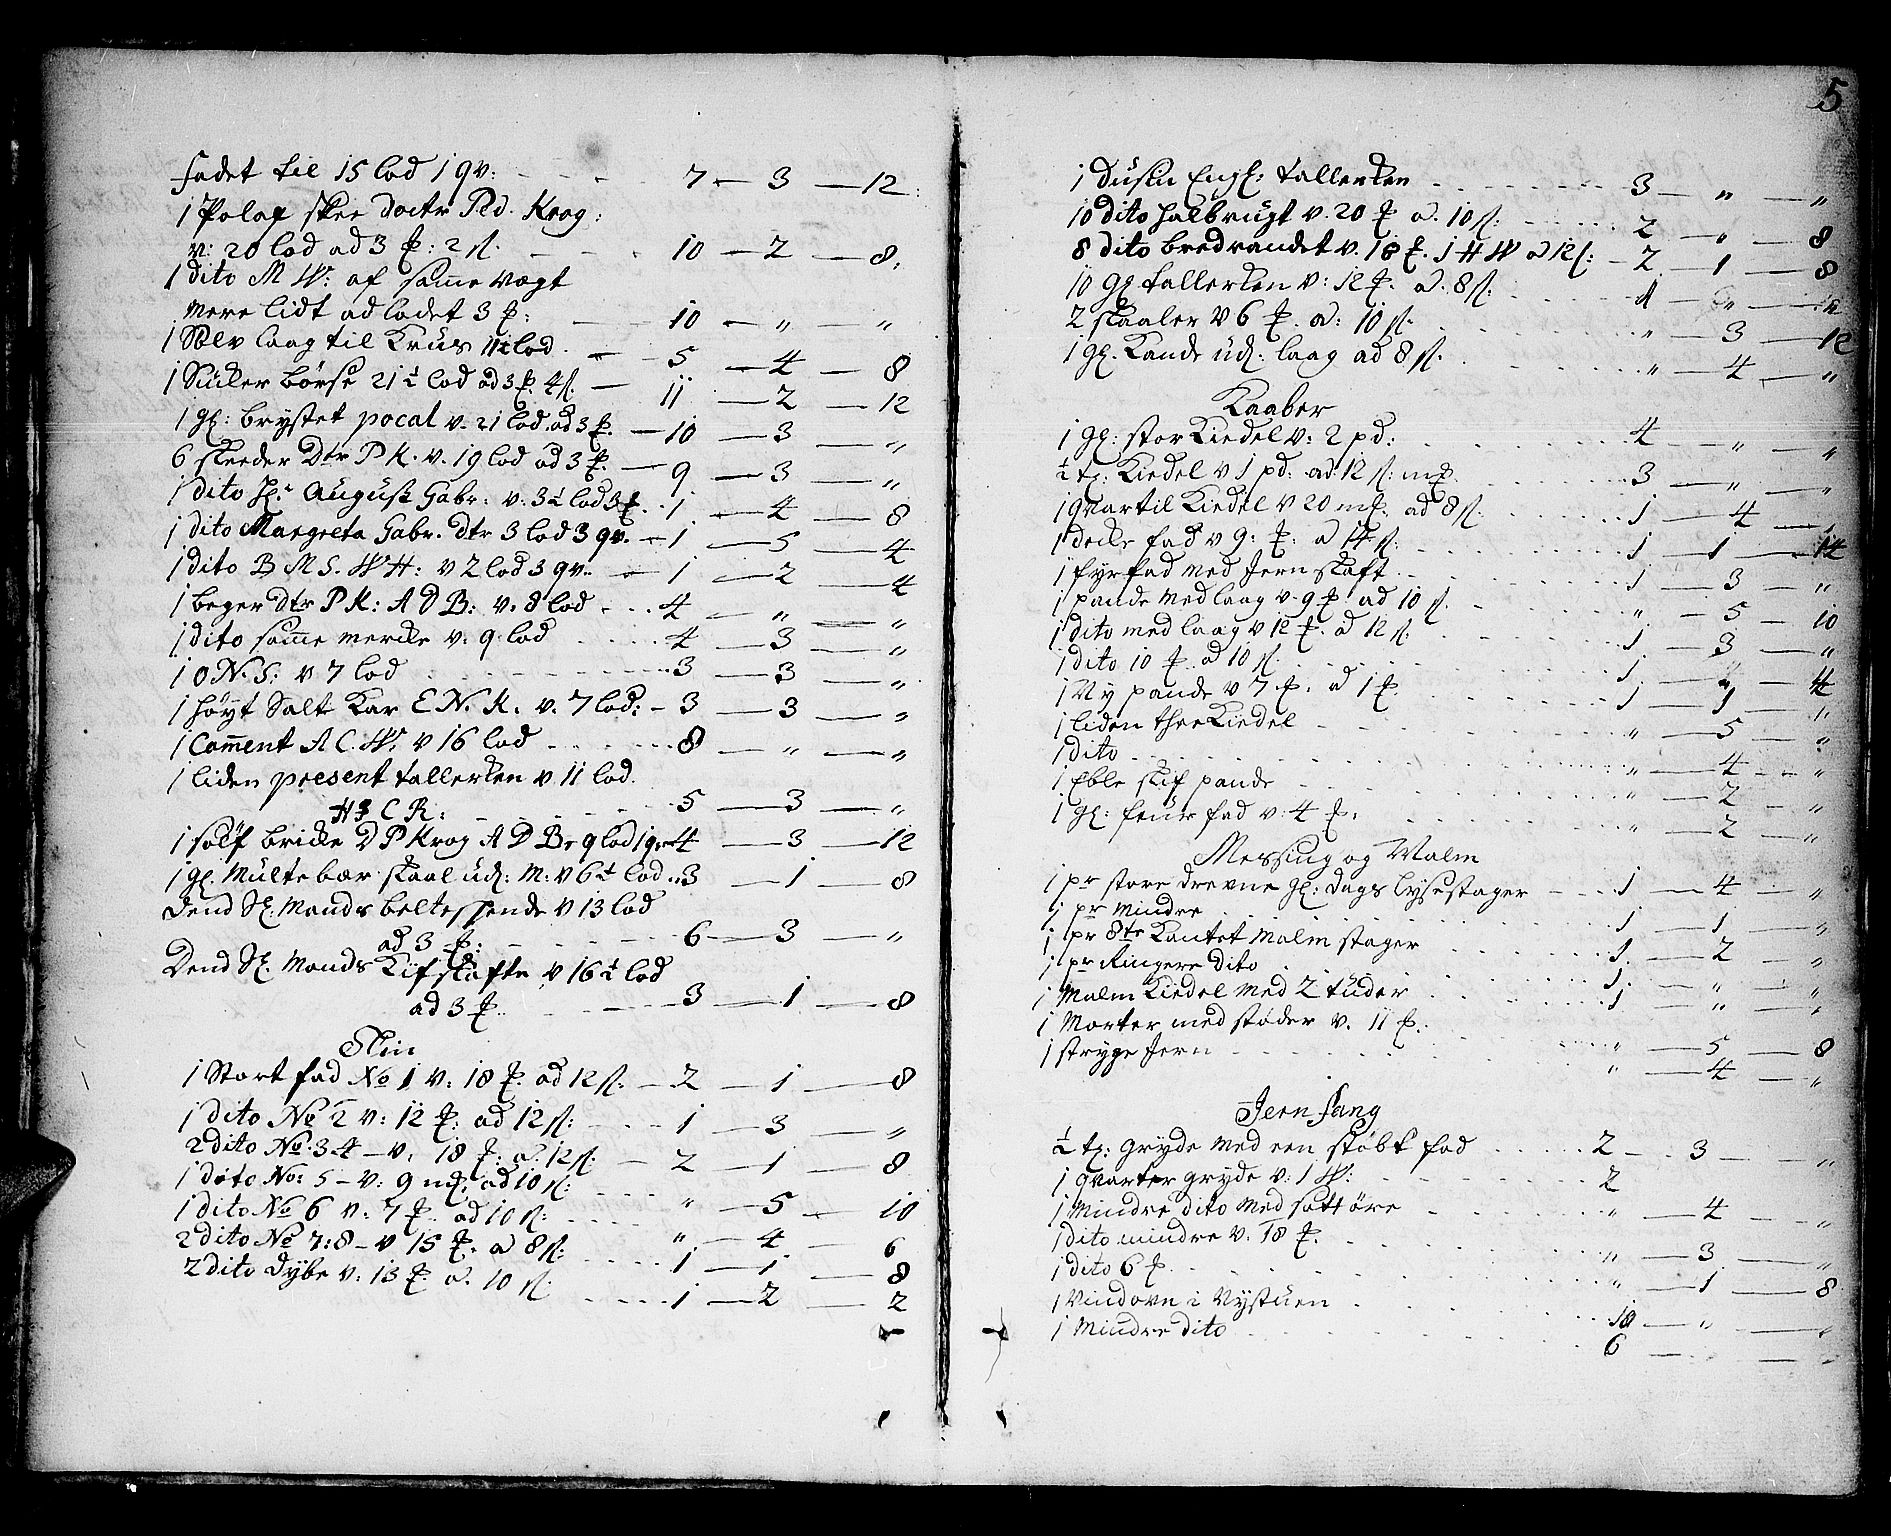 fadet til 15 lod 1 qv: 7 — 3 — 12
1 Polaf skee doctr Ped. Krog:
v: 20 lod ad 3 ₰: 2 ſ. 10 — 2 — 8
1 dito M W: af samme vægt
mere lidt ad lodet 3 ₰: 10 — „ — „
1 Sølv laag til Krus 11½ lod 5 — 4 — 8
1 Sucker börse 21½ lod ad 3 ₰ 4 ſ. 11 — 2 — 12
1 gl: brystet pocal v. 21 lod ad 3 ₰. 10 — 3 — „
6 skeeder Dtr P K. v. 19 lod ad 3 ₰. 9 — 3 — „
1 dito Hr August Gabr: v: 3½ lod 3 ₰. 1 — 4 — 8
1 dito Margreta Gabr. dtr 3 lod 3 qv. 1 — 5 — 4
1 dito B M S. W H: v 2 lod 3 qv. 1 — 2 — 4
1 beger Dtr P K: A D B: v. 8 lod 4 — „ — „
1 dito samme mercke v: 9 lod 4 — 3 — „
1 O N. S: v 7 lod 3 — 3 — „
1 höyt Salt Kar E N. K. v. 7 lod: 3 — 3 — „
1 Comment A C. W: v 16 lod 8 — „ — „
1 liden present tallerken v 11 lod.
H C R: 5 — 3 — „
1 sölf bricke D P Krog A D B 9 lod 1 qv 4 — 3 — 12
1 gl. Multebær skaal ud: M: v 6½ lod 3 — 1 — 8
Dend Sl. Mands beltespende v 13 lod
ad 3 ₰: 6 — 3 — „
Dend Sl. Mands Kifskafte v 16½ lod
ad 3 ₰. 3 — 1 — 8
Tin
1 Stort fad No 1 v: 18 ₰. ad 12 ſ: 2 — 1 — 8
1 dito No 2 v: 12 ₰: ad 12 ſ: 1 — 3 — „
2 dito No. 3 4 — v. 18 ₰. a 12 ſ. 2 — 1 — 8
1 dito No: 5 — v: 9 m₰. ad 10 ſ: „ — 5 — 10
1 dito No 6 v: 7 ₰. ad 10 ſ: „ — 4 — 6
2 dito No 7:8 — v 15 ₰. a 8 ſ: 1 — 1 — 8
2 dito Dybe v: 13 ₰. a. 10 ſ. 1 — 2 — 2
5
1 Dusin Engl: tallerken 3 — „ — „
10 dito halbrugt v. 20 ₰ a. 10 ſ: 2 — „ — 8
8 dito bredrandet v. 18 ₰. J H W a 12 ſ: 2 — 1 — 8
10 gl tallerken v: 12 ₰. a. 8 ſ: 1 — „ — „
2 skaaler v 6 ₰. a: 10 ſ. „ — 3 — 12
1 gl. Kande ud: laag ad 8 ſ. „ — 4 — „
Kaaber
1 gl: stor Kiedel v: 2 pd: 4 — „ — „
½ tz: Kiedel v 1 pd: ad 12 ſ: m₰. 3 — „ — „
1 qvartil Kiedel v 20 m₰: ad 8 ſ. 1 — 4 — „
1 decke fad v 9: ₰: a 14 ſ: 1 — 1 — 14
1 fyrfad med Jern skaft 1 — 3 — „
1 pande med laag v. 9 ₰. ad 10 ſ. „ — 5 — 10
1 dito med laag v 12 ₰. ad 12 ſ. 1 — 3 — „
1 dito 10 ₰. ad 10 ſ. 1 — „ — 4
1 Ny pande v 7 ₰. a 1 ₰. 1 — 1 — „
1 liden thee Kiedel „ — 5 — „
1 dito „ — 4 — „
1 Eble skif pande „ — 2 — „
1 gl: feur fad v: 4 ₰. „ — 2 — „
Messing og Malm
1 pr store drevne gl: dags lysestager 1 — 4 — „
1 pr mindre 1 — 1 — „
1 pr 8te Kantet Malm stager 1 — 2 — „
1 pr Ringere dito 1 — „ — „
1 Malm Kiedel med 2 tuder 1 — „ — „
1 Morter med støder v. 11 ₰. „ — 5 — 8
1 stryge Jern „ — 4 — „
Jern fang
½ tz: gryde med een støbt fod 2 — 3 — „
1 qvarter gryde v: 1 W: 2
1 Mindre dito med satt öre „ — 4 — „
1 dito mindre v: 18 ₰. „ — 3 — „
1 dito 6 ₰. „ — 1 — 8
1 Vindovn i Nystuen 18 — „ — „
1 Mindre dito 6 — —